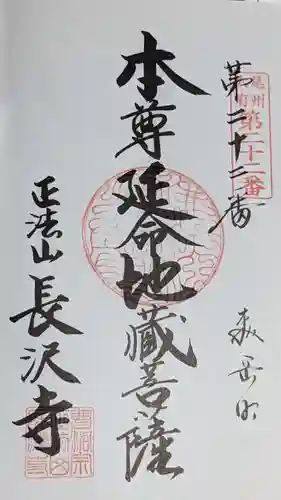 第二十二番
第二十二番
本尊延命地蔵菩薩
正法山
長沢寺